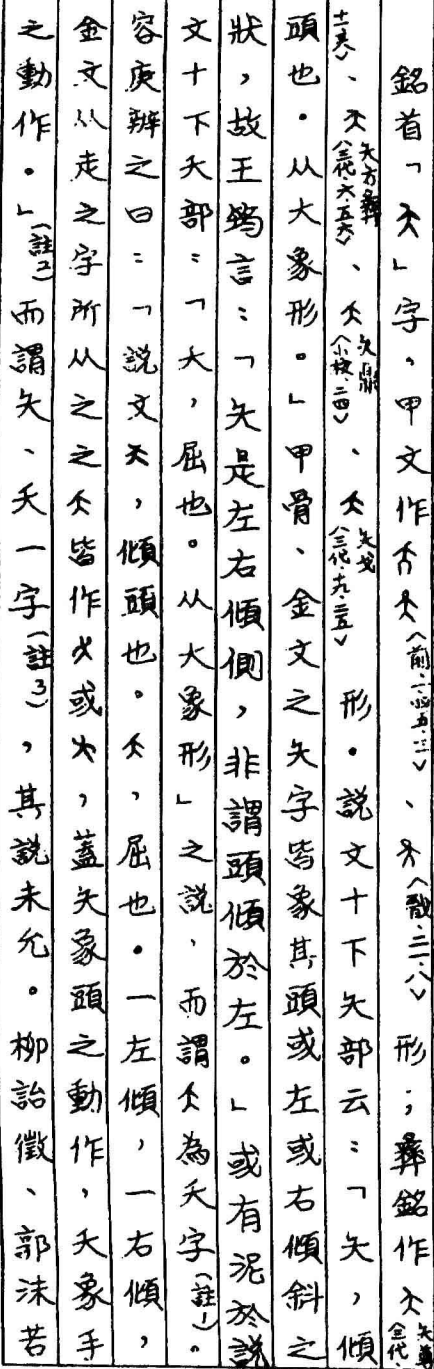 銘首「夨」字，甲文作夨夨〈前．一．四五．三〉、夨〈戩．三一．八〉形；彝銘作夨夨尊〈三代
十一．夫〉、夨夨方彝〈三代．六．五六〉、夨夨鼎〈小校．二四〉、夨夨戈〈三代．十九．二五〉形。說文十下夨部云：「夨，傾
頭也。从大象形。」甲骨、金文之夨字皆象其頭或左或右傾斜之
狀，故王筠言：「夨是左右傾側，非謂頭傾於左。」或有泥於說
文十下夭部：「夭，屈也。从大象形」之說，而謂夨為夭字（註1）。
容庚辨之曰：「說文夨，傾頭也。夭，屈也。一左傾，一右傾，
金文从走之字所从之夭皆作或，蓋夨象頭之動作，夭象手
之動作。」（註2）而謂夨、夭一字（註3），其說未允。柳詒徵、郭沫若